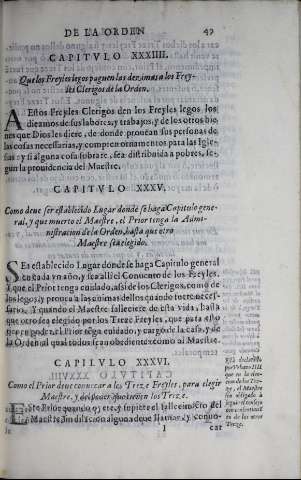 DE LA ORDEN 49
CAPITVLO XXXIIII.
Que los Freyles legos paguen las dezimas a los Frey-
les Clerigos de la Orden.
A Estos Freyles Clerigos den los Freyles legos los
diezmos de sus labores, y trabajos, y de los otros bie-
nes que Dios les diere, de donde prouean sus personas de
las cosas necessarias, y compren ornamentos para las Igle-
sias y si alguna cosa sobrare, sea distribuida a pobres, se-
gun la prouidencia del Maestre.
CAPITVLO XXXV.
Como deue ser establecido Lugar donde se haga Capitulo gene-
ral, y que muerto el Maestre, el Prior tenga la Admi-
nistracion de la Orden, hasta que otro
Maestre sea elegido.
SEa establecido Lugar donde se haga Capitulo general
en cada vn año, y sea alli el Conuento de los Freyles,
Y que el Prior tenga cuidado, assi de los Clerigos, como de
los legos, y prouea a las animas dellos quando fuere neces-
sario. Y quando el Maestre falleciere de esta vida, hasta
que otro sea elegido por los Treze Freyles, que para esto
son el Prior tenga cuidado, y cargo de la casa, y de
la Orden al qual todos sean obedientes como al Maestre.
CAPILVLO XXXVI.
Como el Prior deue conuocar a los Treze Freyles, para elegir
Maestre, y del poder que tienen los Treze.
Este Prior quando oyere, y supiere el fallecimiẽto del
Maestre, sin dilacion alguna deue llamar, y conuo-
I car